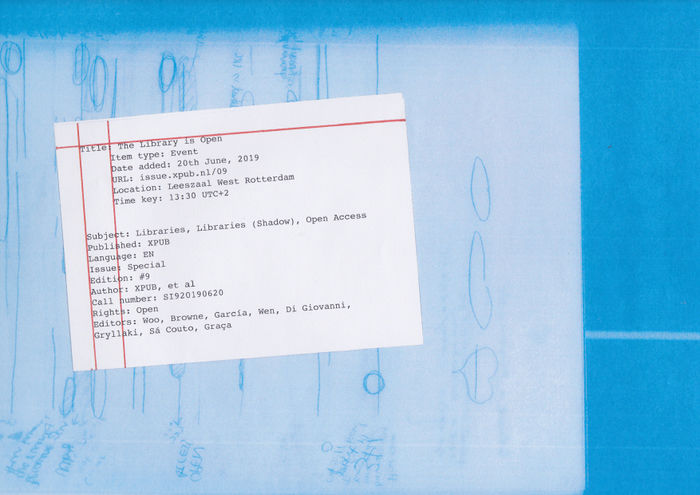 Title: The Library is Open
Item type: Event
Date added: 20th June, 2019
URL: issue.xpub.nl/09
Location: Leeszaal West Rotterdam
Time key: 13:30 UTC+2
Subject: Libraries, Libraries (Shadow), Open Access
Published: XPUB
Language: EN
Issue: Special
Edition: #9
Author: XPUB, et al
Call number: SI920190620
Rights: Open
Editors: Woo, Browne, García, Wen, Di Giovanni,
Gryllaki, Sá Couto, Graça